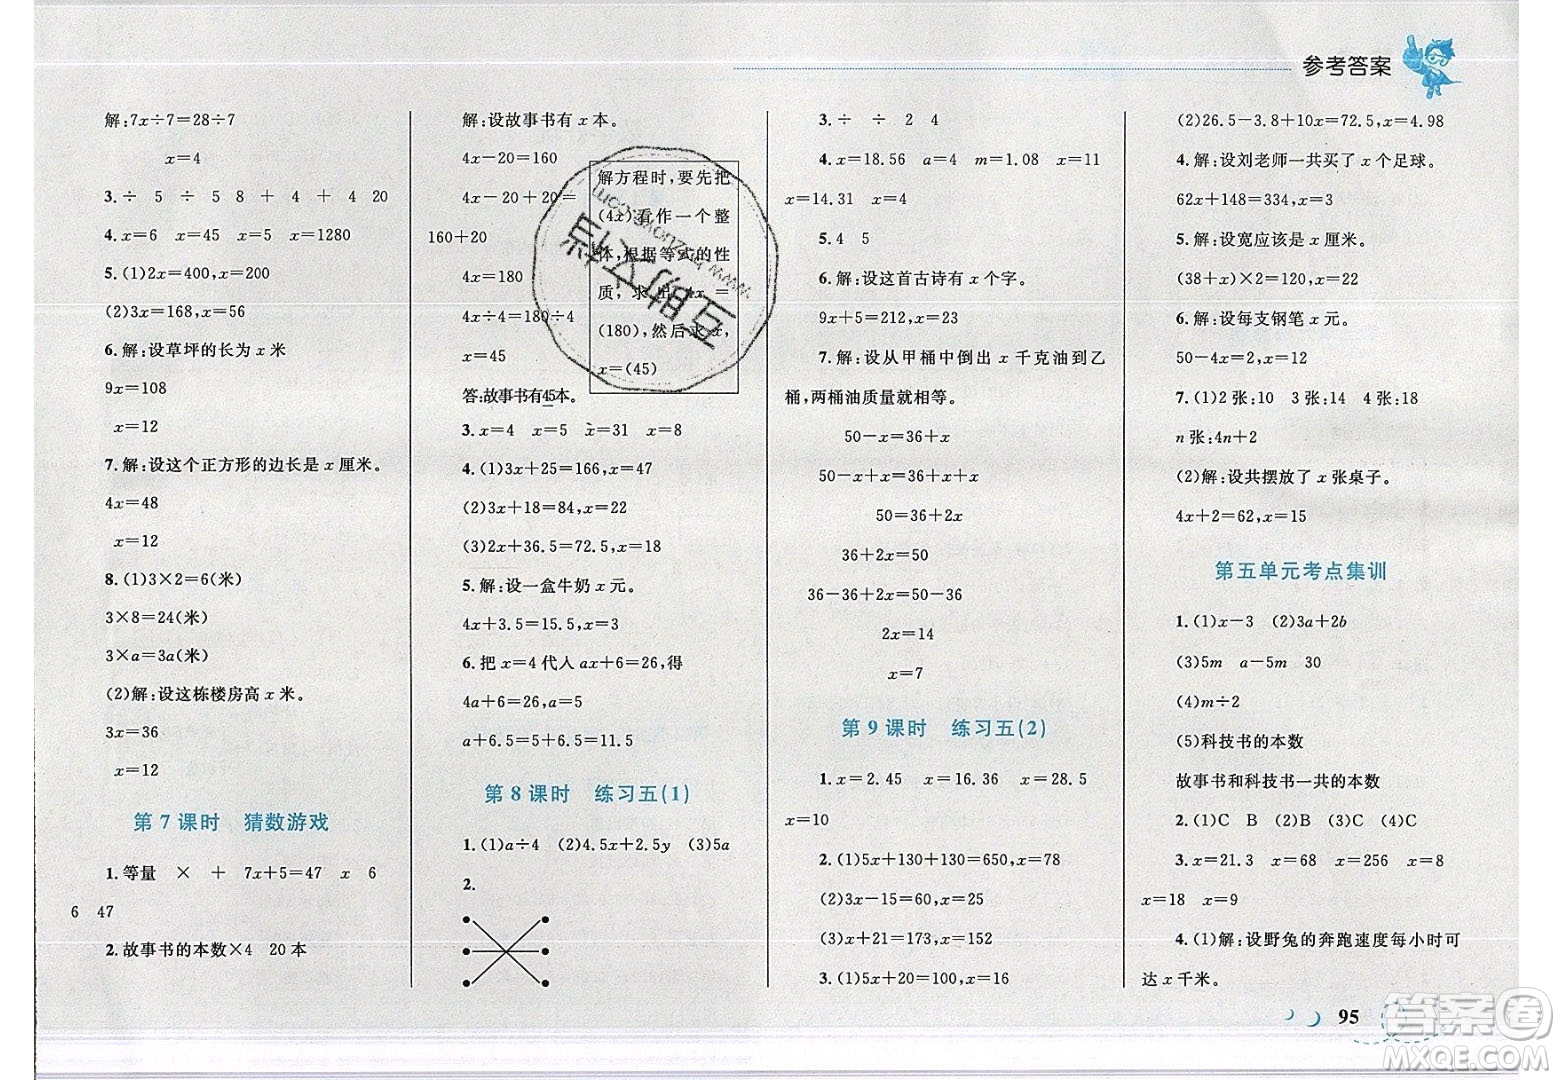 参考答案
解:7x÷7=28÷7
x=4
3.÷ 5 ÷ 5 8 + 4 + 4 20
4.x=6 x=45 x=5 x=1280
5.(1)2x=400,x=200
(2)3x=168,x=56
6.解:设草坪的长为 x 米
9x=108
x=12
7.解:设这个正方形的边长是 x 厘米。
4x=48
x=12
8.(1)3×2=6(米)
3×8=24(米)
3×a=3a(米)
(2)解:设这栋楼房高 x 米。
3x=36
x=12
第 7 课时 猜数游戏
1.等量 × + 7x+5=47 x 6
6 47
2.故事书的本数×4 20 本
解:设故事书有 x 本。
4x-20=160
4x-20+20=
160+20
4x=180
4x÷4=180÷4
x=45
答:故事书有45本。
解方程时,要先把
(4x)看作一个整
体,根据等式的性
质,求出4x=
(180),然后求 x,
x=(45)
3.x=4 x=5 x=31 x=8
4.(1)3x+25=166,x=47
(2)3x+18=84,x=22
(3)2x+36.5=72.5,x=18
5.解:设一盒牛奶 x 元。
4x+3.5=15.5,x=3
6.把 x=4 代人 ax+6=26,得
4a+6=26,a=5
a+6.5=5+6.5=11.5
第 8 课时 练习五(1)
1.(1)a÷4 (2)4.5x+2.5y (3)5a
2.
3.÷ ÷ 2 4
4.x=18.56 a=4 m=1.08 x=11
x=14.31 x=6
5.4 5
6.解:设这首古诗有 x 个字。
9x+5=212,x=23
7.解:设从甲桶中倒出 x 千克油到乙
桶,两桶油质量就相等。
50-x=36+x
50-x+x=36+x+x
50=36+2x
36+2x=50
36-36+2x=50-36
2x=14
x=7
第 9 课时 练习五(2)
1.x=2.45 x=16.36 x=28.5
x=10
2.(1)5x+130+130=650,x=78
(2)3x-15=60,x=25
(3)x+21=173,x=152
3.(1)5x+20=100,x=16
(2)26.5-3.8+10x=72.5,x=4.98
4.解:设刘老师一共买了 x 个足球。
62x+148=334,x=3
5.解:设宽应该是 x 厘米。
(38+x)×2=120,x=22
6.解:设每支钢笔 x 元。
50-4x=2,x=12
7.(1)2 张:10 3 张:14 4 张:18
n 张:4n+2
(2)解:设共摆放了 x 张桌子。
4x+2=62,x=15
第五单元考点集训
1.(1)x-3 (2)3a+2b
(3)5m a-5m 30
(4)m÷2
(5)科技书的本数
故事书和科技书一共的本数
2.(1)C B (2)B (3)B (4)C
3.x=21.3 x=68 x=256 x=8
x=18 x=9
4.(1)解:设野兔的奔跑速度每小时可
达 x 千米。
95
答案圈
MXQE.COM